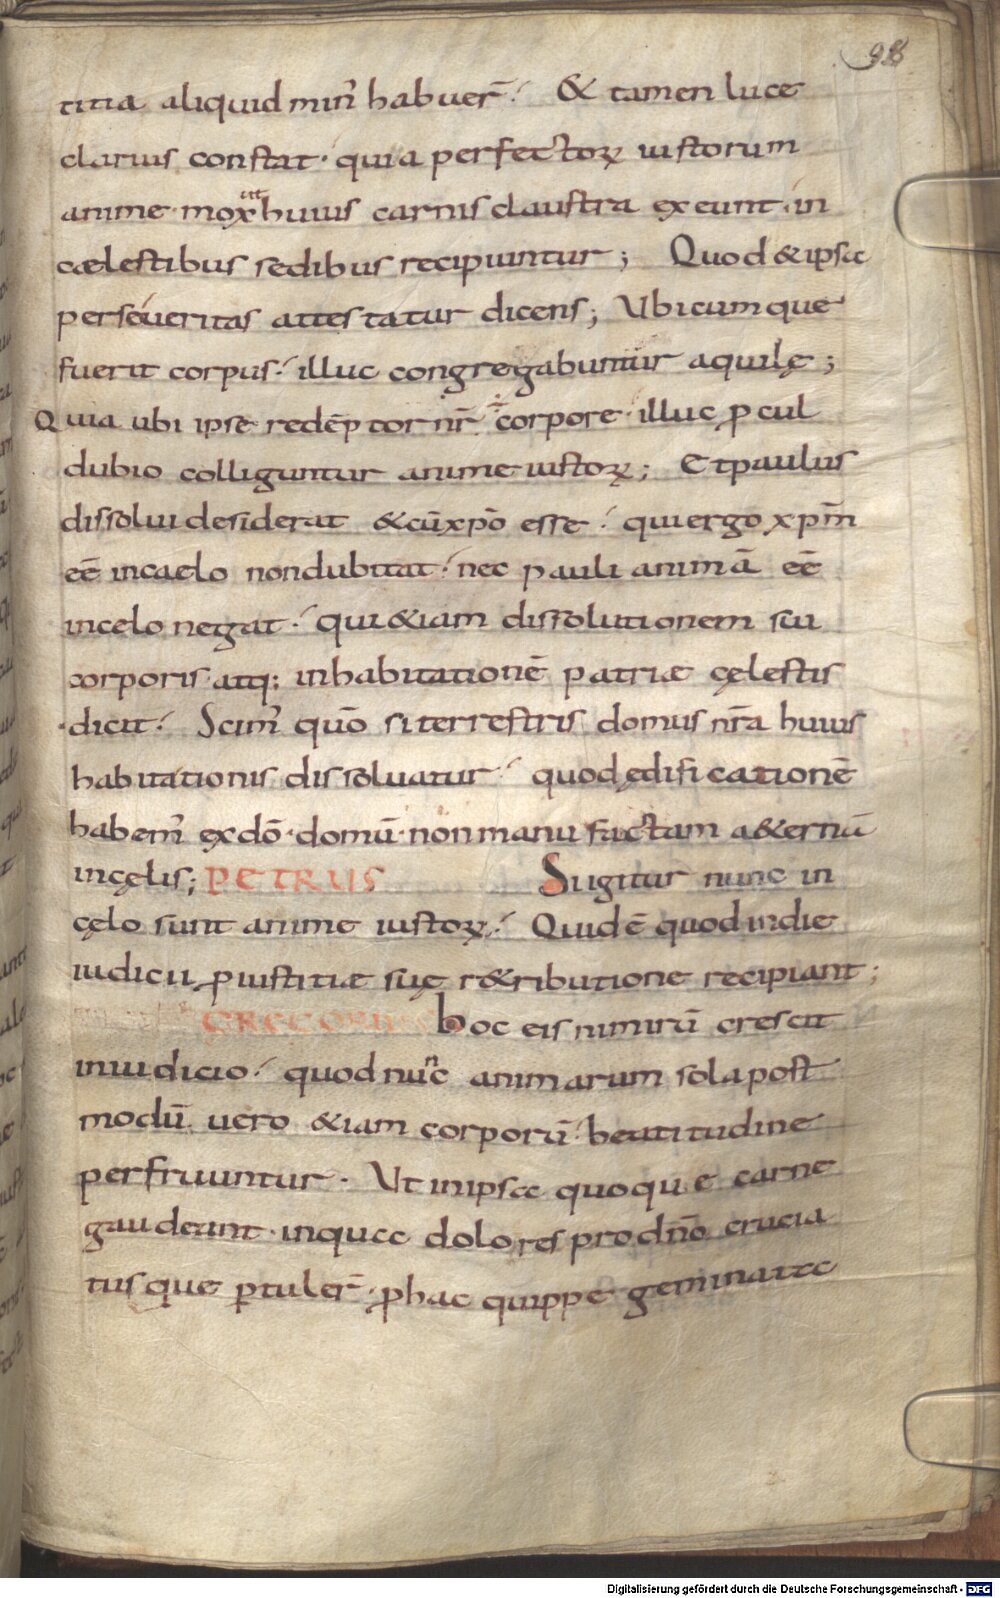 98
titia aliquid min᷎ habuer̄. & tamen luce
clarius constat. quia perfectoꝝ iustorum
anime mox ut huius carnis claustra exeunt. in
cælestibus sedibus recipiuntur; Quod & ipsa
perseueritas attestatur dicens; Ubicumque
fuerit corpus. illuc congregabuntur aquilę;
Quia ubi ipse redēptor nr̄ ÷ corpore. illuc ꝓcul
dubio colliguntur anime iustoꝝ; Et paulus
dissolui desiderat & cū xp̄o esse. qui ergo xp̄m
eē in caelo non dubitat. nec pauli animā eē
in celo negat. qui & iam dissolutionem sui
corporis atq; inhabitationē patriæ cęlestis
dicit. Scim᷎ quō si terrestris domus nr̄a huius
habitationis dissoluatur. quod ędificationē
habem᷎ ex dō. domū. non manu factam a&ernā
in cęlis; PETRUS Sigitur nunc in
cęlo sunt anime iustoꝝ. Quid ē quod in die
iudicii ꝓ iustitiæ suę r&ributione recipiant;
GREGORIUS hoc eis nimirū crescit
in iudicio. quod nunc animarum sola post
modū uero &iam corporū beatitudine
perfruuntur. Ut in ipsa quoque carne
gaudeant. in qua dolores pro dn̄o crucia
tusque ꝑtuler̄. ꝓ hac quippe geminata
Digitalisierung gefördert durch die Deutsche Forschungsgemeinschaft - DFG